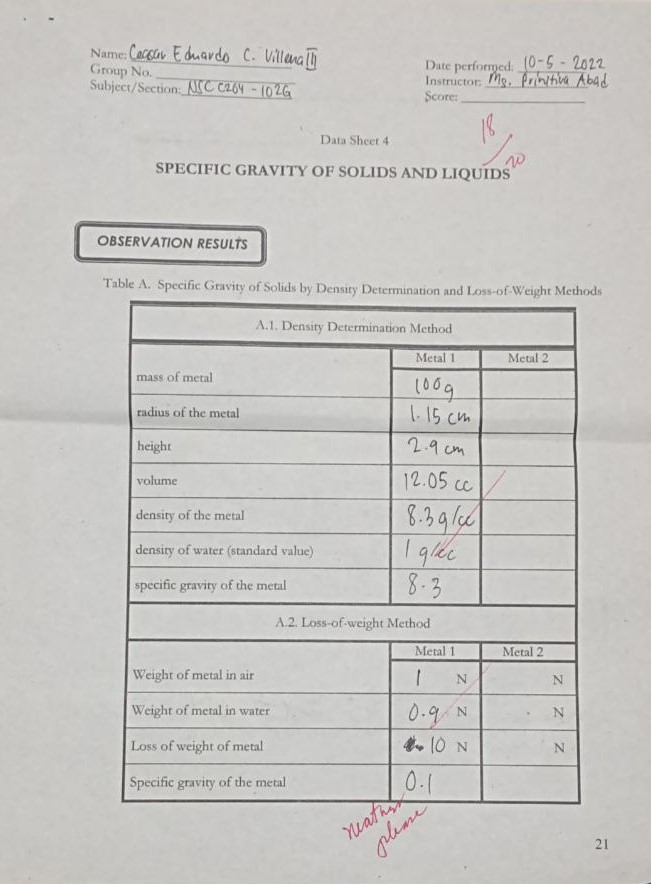 Name: Caesar Eduardo C. Villena III
Date performed: 10-5-2022
Group No.
Instructor: Ms. Primitiva Abad
Subject/Section: NSC C264 - 102G
Score:
18/20
Data Sheet 4
SPECIFIC GRAVITY OF SOLIDS AND LIQUIDS
OBSERVATION RESULTS
Table A. Specific Gravity of Solids by Density Determination and Loss-of-Weight Methods
A.1. Density Determination Method
Metal 1 Metal 2
mass of metal 100g
radius of the metal 1.15 cm
height 2.9 cm
volume 12.05 cc
density of the metal 8.3 g/cc
density of water (standard value) 1 g/cc
specific gravity of the metal 8.3
A.2. Loss-of-weight Method
Metal 1 Metal 2
Weight of metal in air 1 N N
Weight of metal in water 0.9 N N
Loss of weight of metal 10 N N
Specific gravity of the metal 0.1
please
21